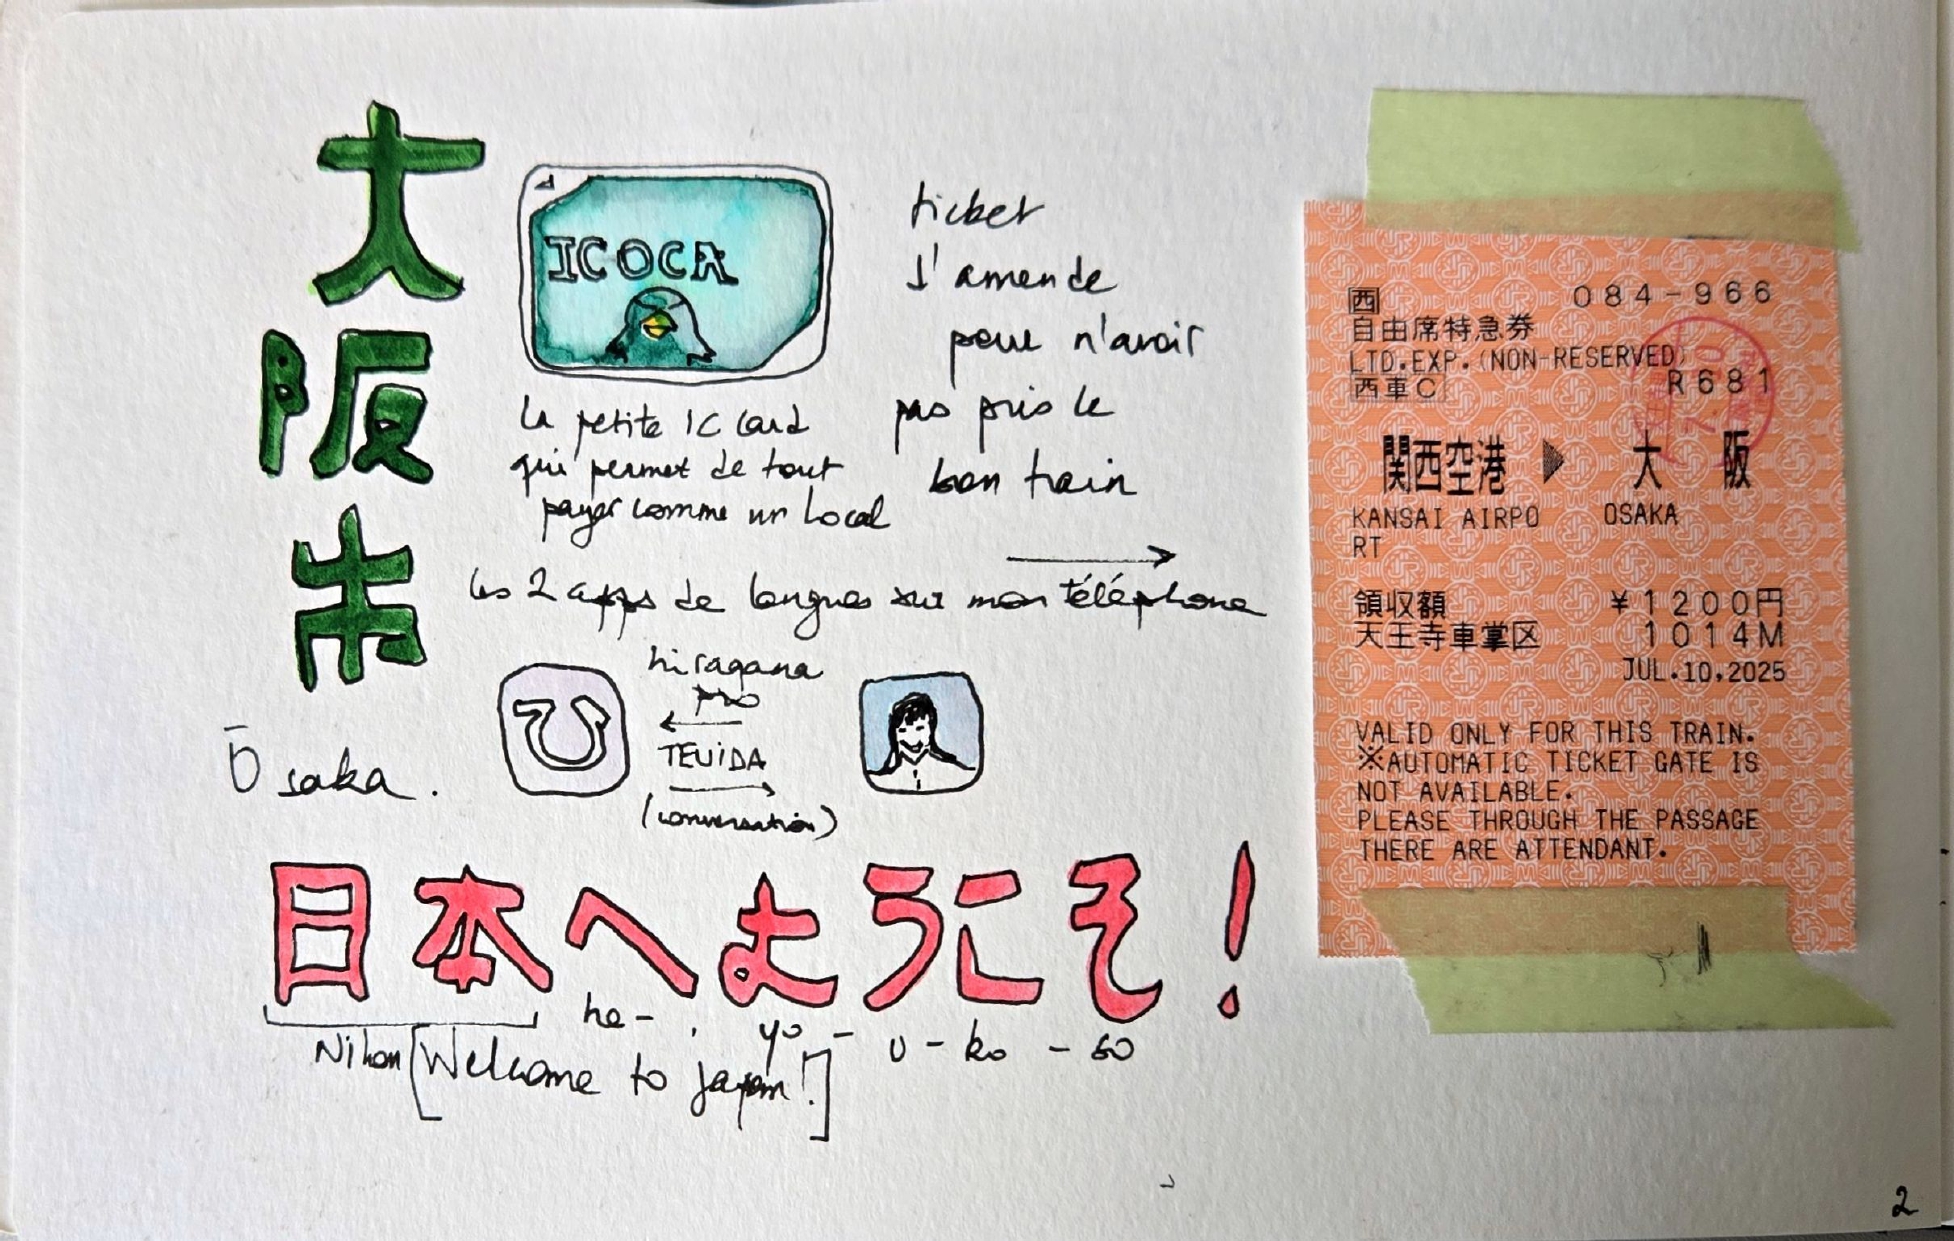 大
阪
市
Ōsaka.
ICOCA
La petite IC Card
qui permet de tout
payer comme un Local
ticket
d'amende
pour n'avoir
pas pris le
bon train
Les 2 apps de langues sur mon téléphone
ひ
hiragana
pro
TEUIDA
(conversation)
日本へようこそ!
Nihon he - yo - u - ko - so
[Welcome to japan!]
西 084-966
自由席特急券
LTD.EXP.(NON-RESERVED)
西車C R681
関西空港 ▶ 大 阪
KANSAI AIRPO OSAKA
RT
領収額 ¥1200円
天王寺車掌区 1014M
JUL.10,2025
VALID ONLY FOR THIS TRAIN.
※AUTOMATIC TICKET GATE IS
NOT AVAILABLE.
PLEASE THROUGH THE PASSAGE
THERE ARE ATTENDANT.
2